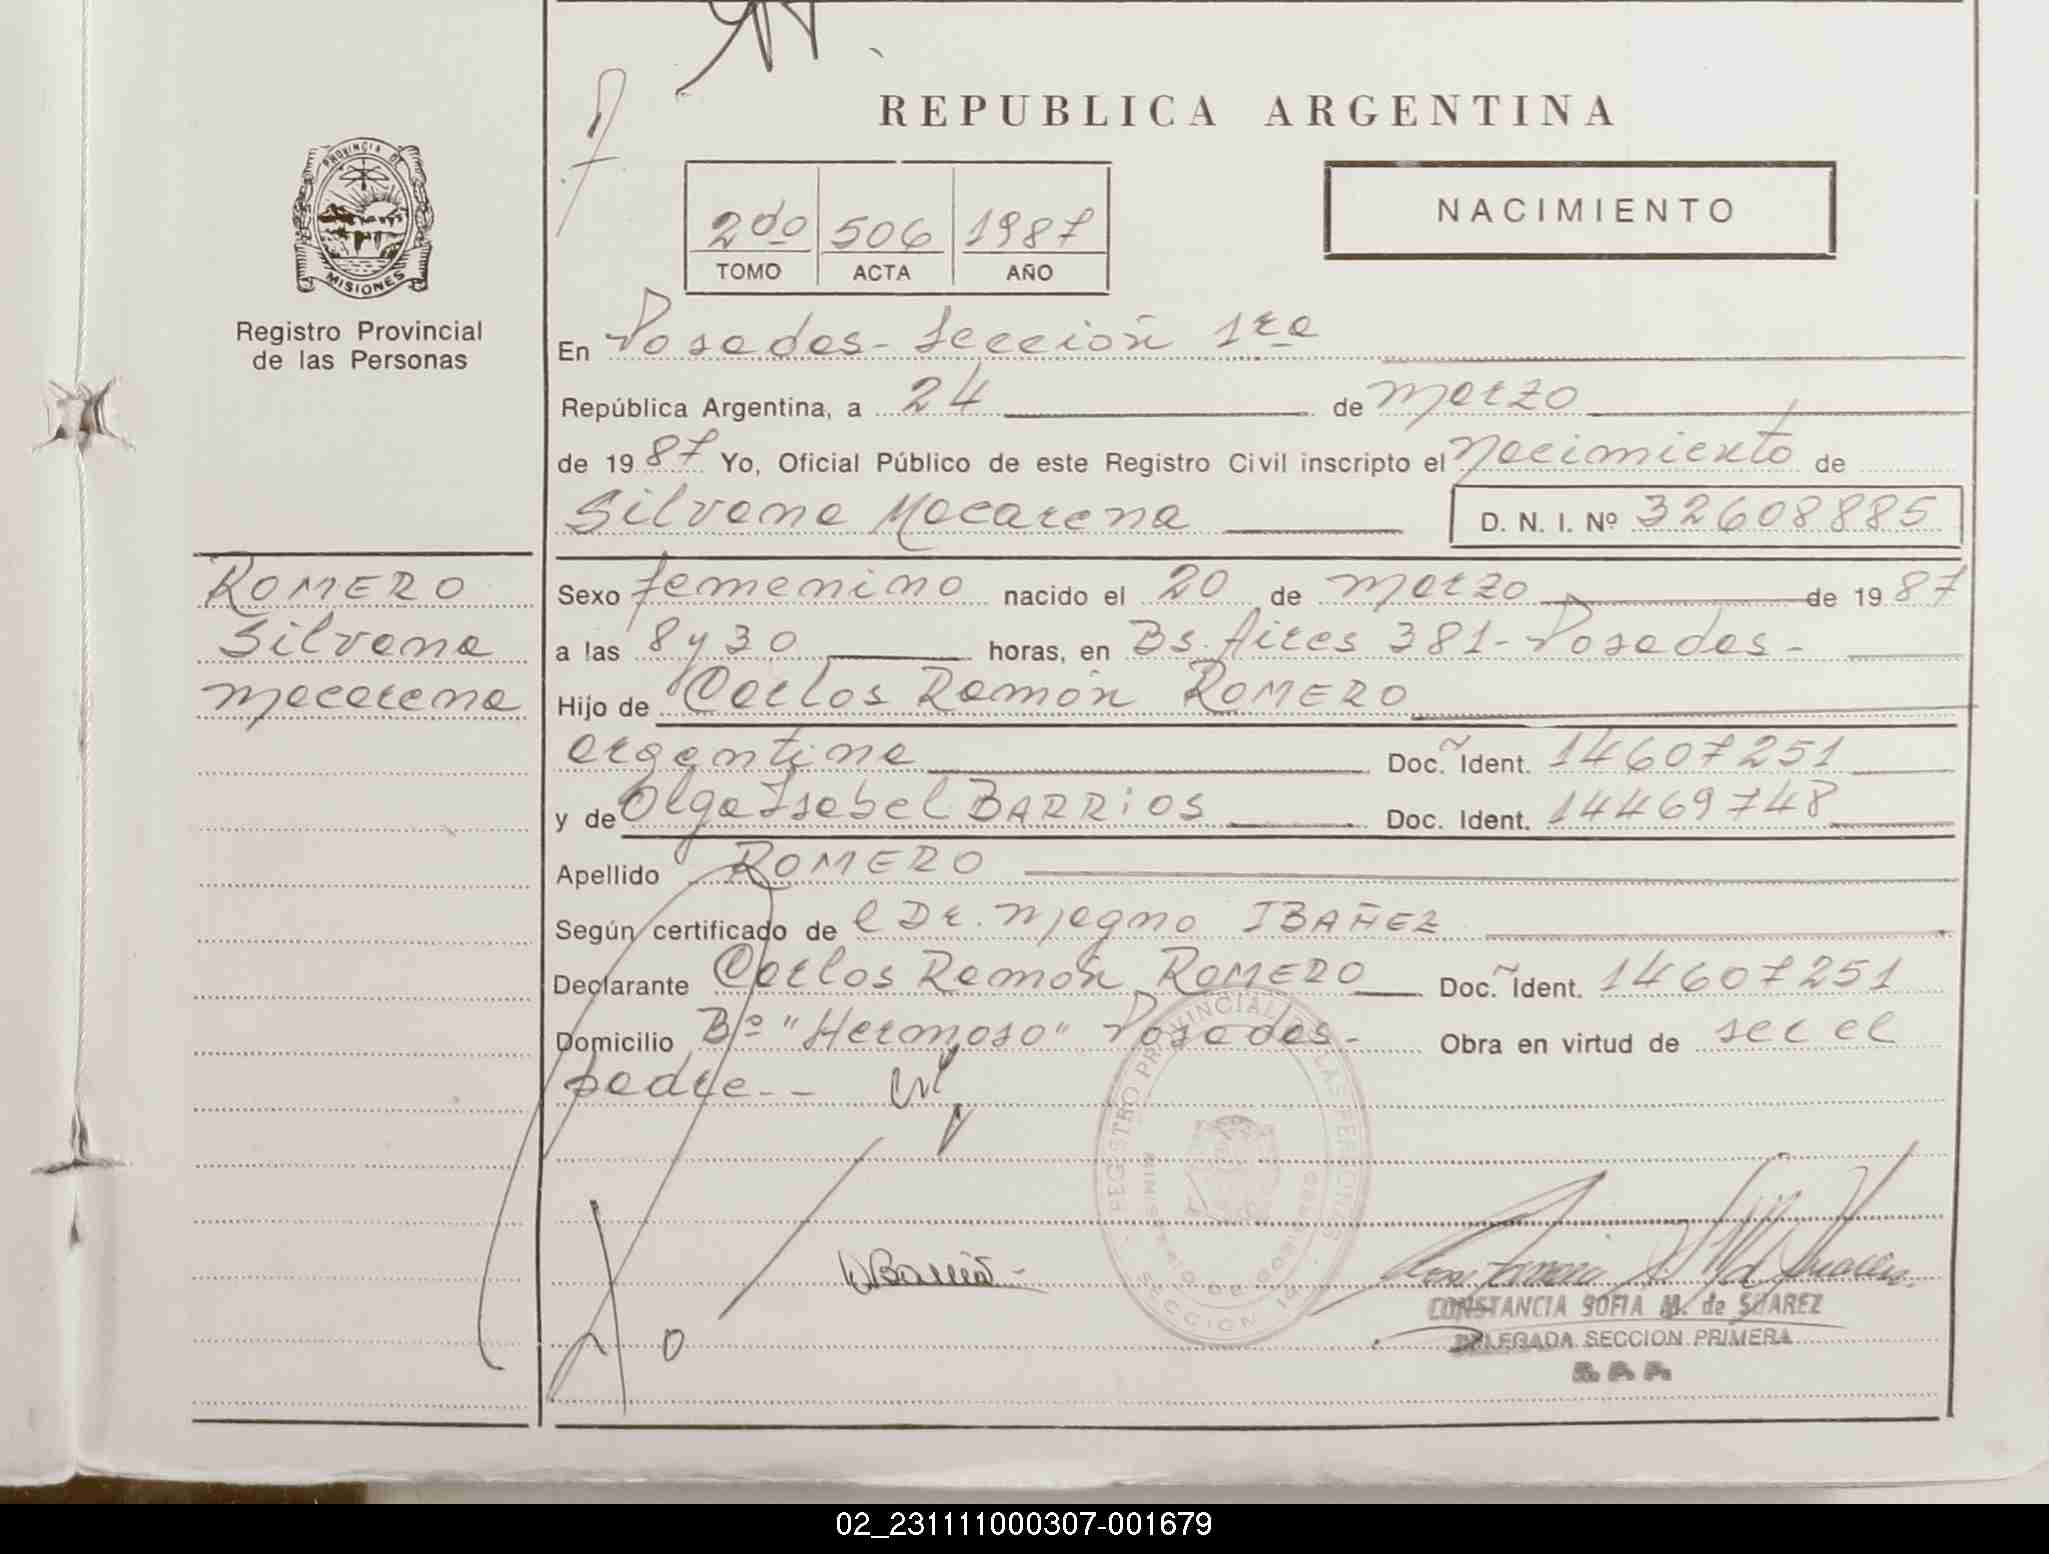 REPUBLICA ARGENTINA
PROVINCIA DE
MISIONES
Registro Provincial
de las Personas
2do 506 1987
TOMO ACTA AÑO
NACIMIENTO
En Posadas - Sección 1ra
República Argentina, a 24 de marzo
de 1987 Yo, Oficial Público de este Registro Civil inscripto el Nacimiento de
Silvana Macarena D. N. I. Nº 32608885
ROMERO
Silvana
Macarena
Sexo femenino nacido el 20 de marzo de 1987
a las 8 y 30 horas, en Bs. Aires 381 - Posadas -
Hijo de Carlos Ramón ROMERO
argentina Doc. Ident. 14607251
y de Olga Isabel BARRIOS Doc. Ident. 14469748
Apellido ROMERO
Según certificado de el Dr. Magno IBAÑEZ
Declarante Carlos Ramón ROMERO Doc. Ident. 14607251
Domicilio Bº "Hermoso" Posadas - Obra en virtud de ser el
padre - -
REGISTRO PROVINCIAL DE LAS PERSONAS
MINISTERIO DE GOBIERNO
SECCION 1ra
CONSTANCIA SOFIA M. de SUAREZ
DELEGADA SECCION PRIMERA
R. P. P.
02_231111000307-001679